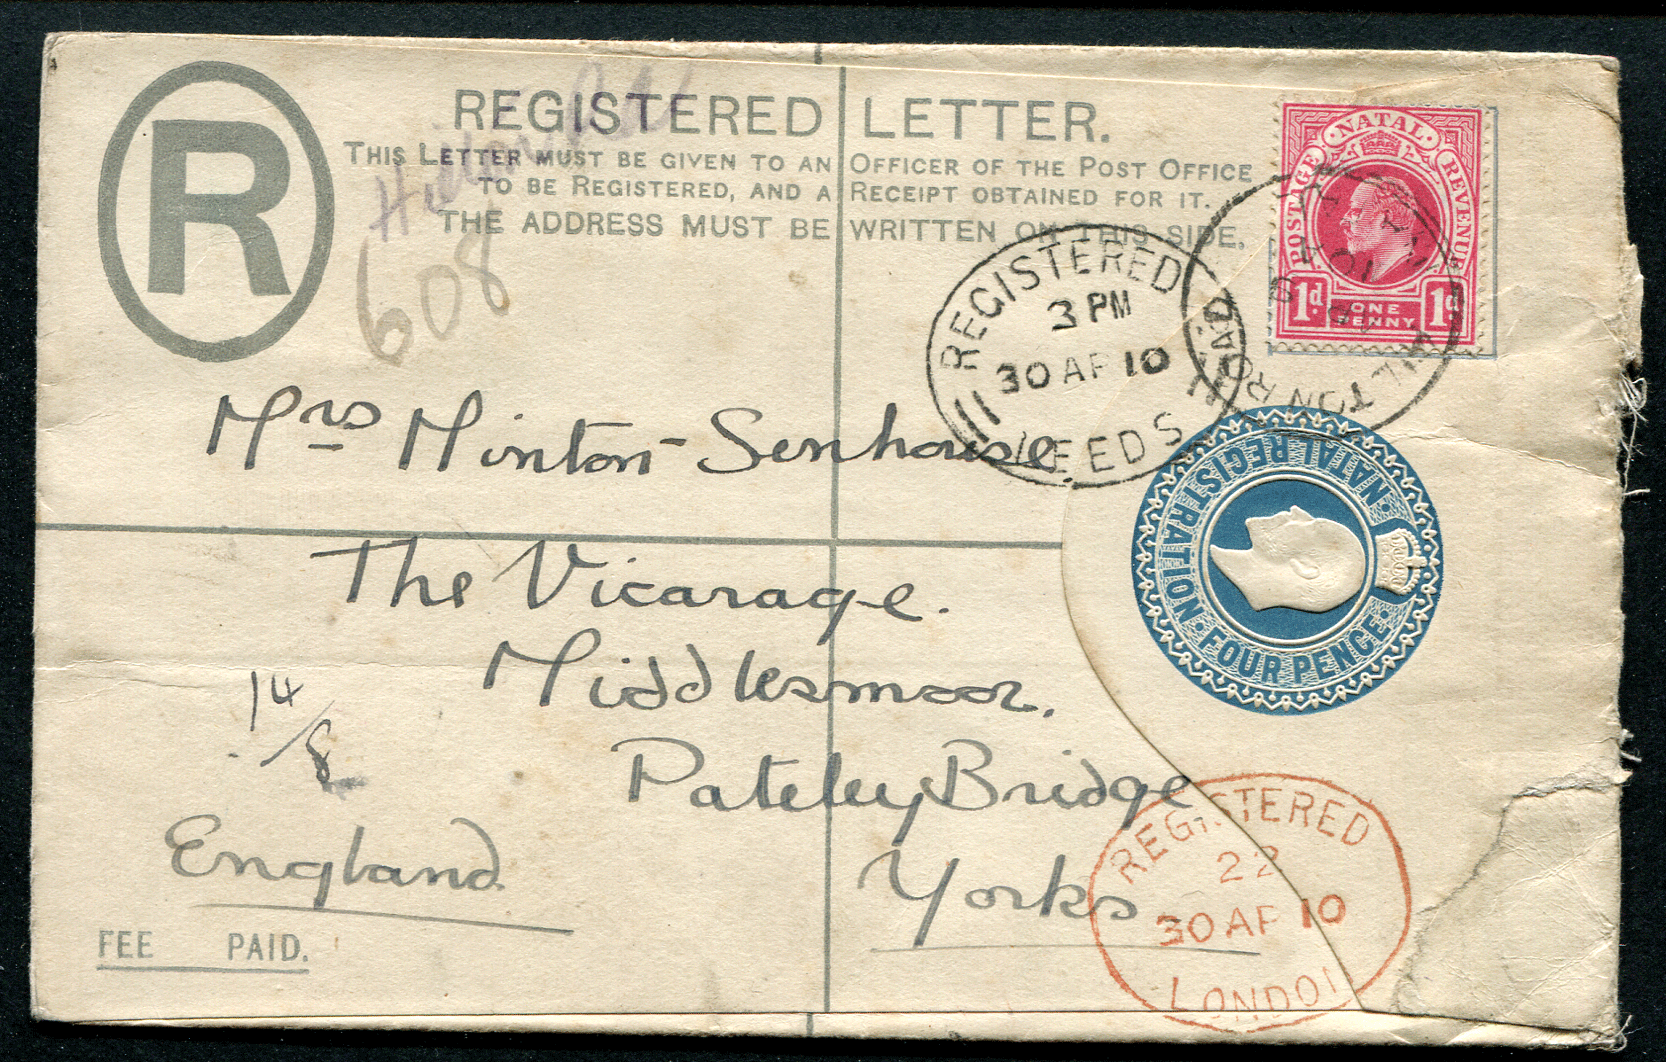 R
REGISTERED LETTER.
THIS LETTER MUST BE GIVEN TO AN OFFICER OF THE POST OFFICE
TO BE REGISTERED, AND A RECEIPT OBTAINED FOR IT.
THE ADDRESS MUST BE WRITTEN ON THIS SIDE.
608
NATAL
POSTAGE
REVENUE
1d
ONE PENNY
1d
HILTON ROAD
REGISTERED
3 PM
30 AP 10
LEEDS
Mrs Minton-Senhouse.
NATAL REGISTRATION
FOUR PENCE
The Vicarage.
Middlesmoor.
14/8
Pateley Bridge
England
Yorks
REGISTERED
22
30 AP 10
LONDON
FEE PAID.